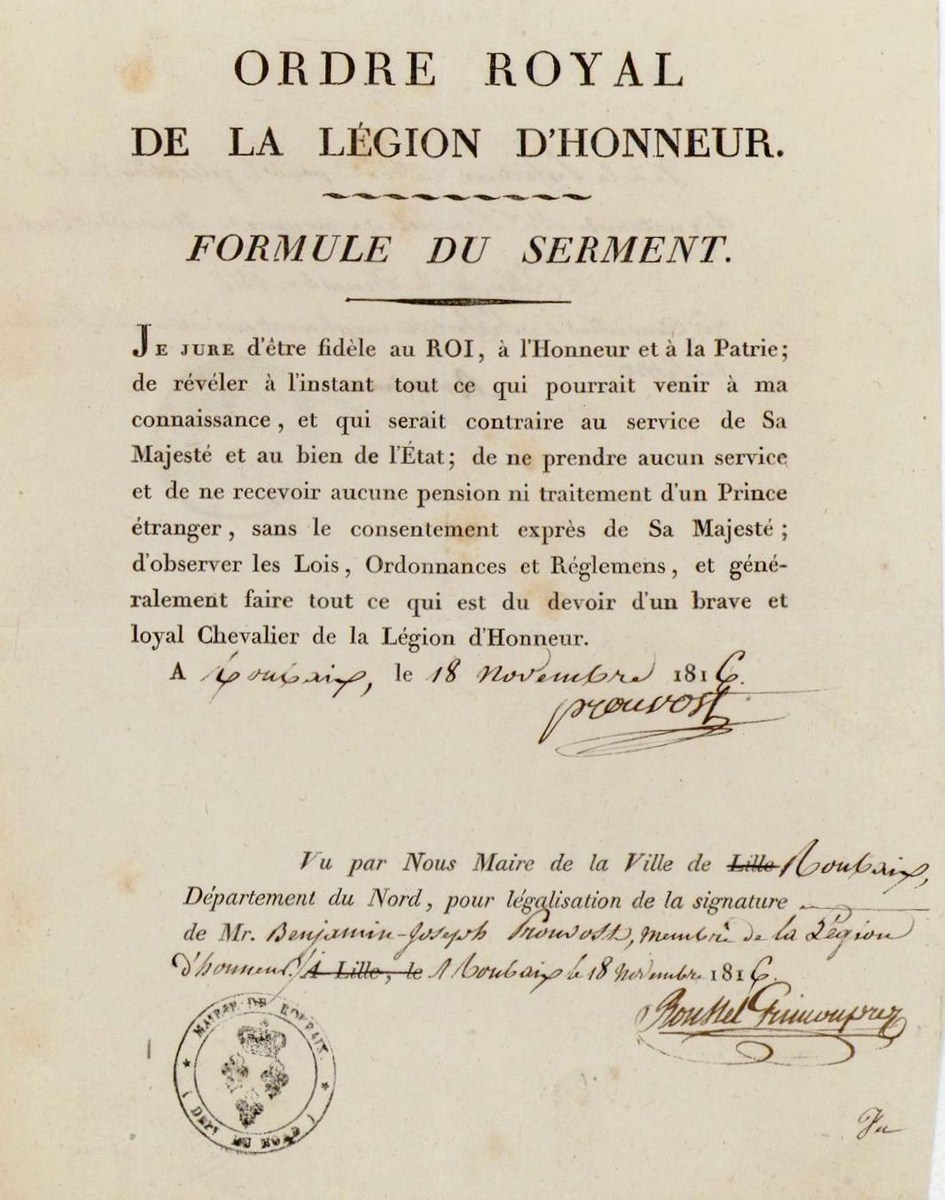 ORDRE ROYAL
DE LA LÉGION D'HONNEUR.
FORMULE DU SERMENT.
JE JURE d'être fidèle au ROI, à l'Honneur et à la Patrie;
de révéler à l'instant tout ce qui pourrait venir à ma
connaissance, et qui serait contraire au service de Sa
Majesté et au bien de l'État; de ne prendre aucun service
et de ne recevoir aucune pension ni traitement d'un Prince
étranger, sans le consentement exprès de Sa Majesté;
d'observer les Lois, Ordonnances et Réglemens, et géné-
ralement faire tout ce qui est du devoir d'un brave et
loyal Chevalier de la Légion d'Honneur.
A Roubaix, le 18 Novembre 1816.
prouvost
Vu par Nous Maire de la Ville de Lille Roubaix,
Département du Nord, pour légalisation de la signature
de Mr. Benjamin-Joseph Prouvost, membre de la Légion
d'honneur. A Lille, le A Roubaix le 18 Novembre 1816.
Roussel
MAIRIE DE ROUBAIX
(DEPT DU NORD)